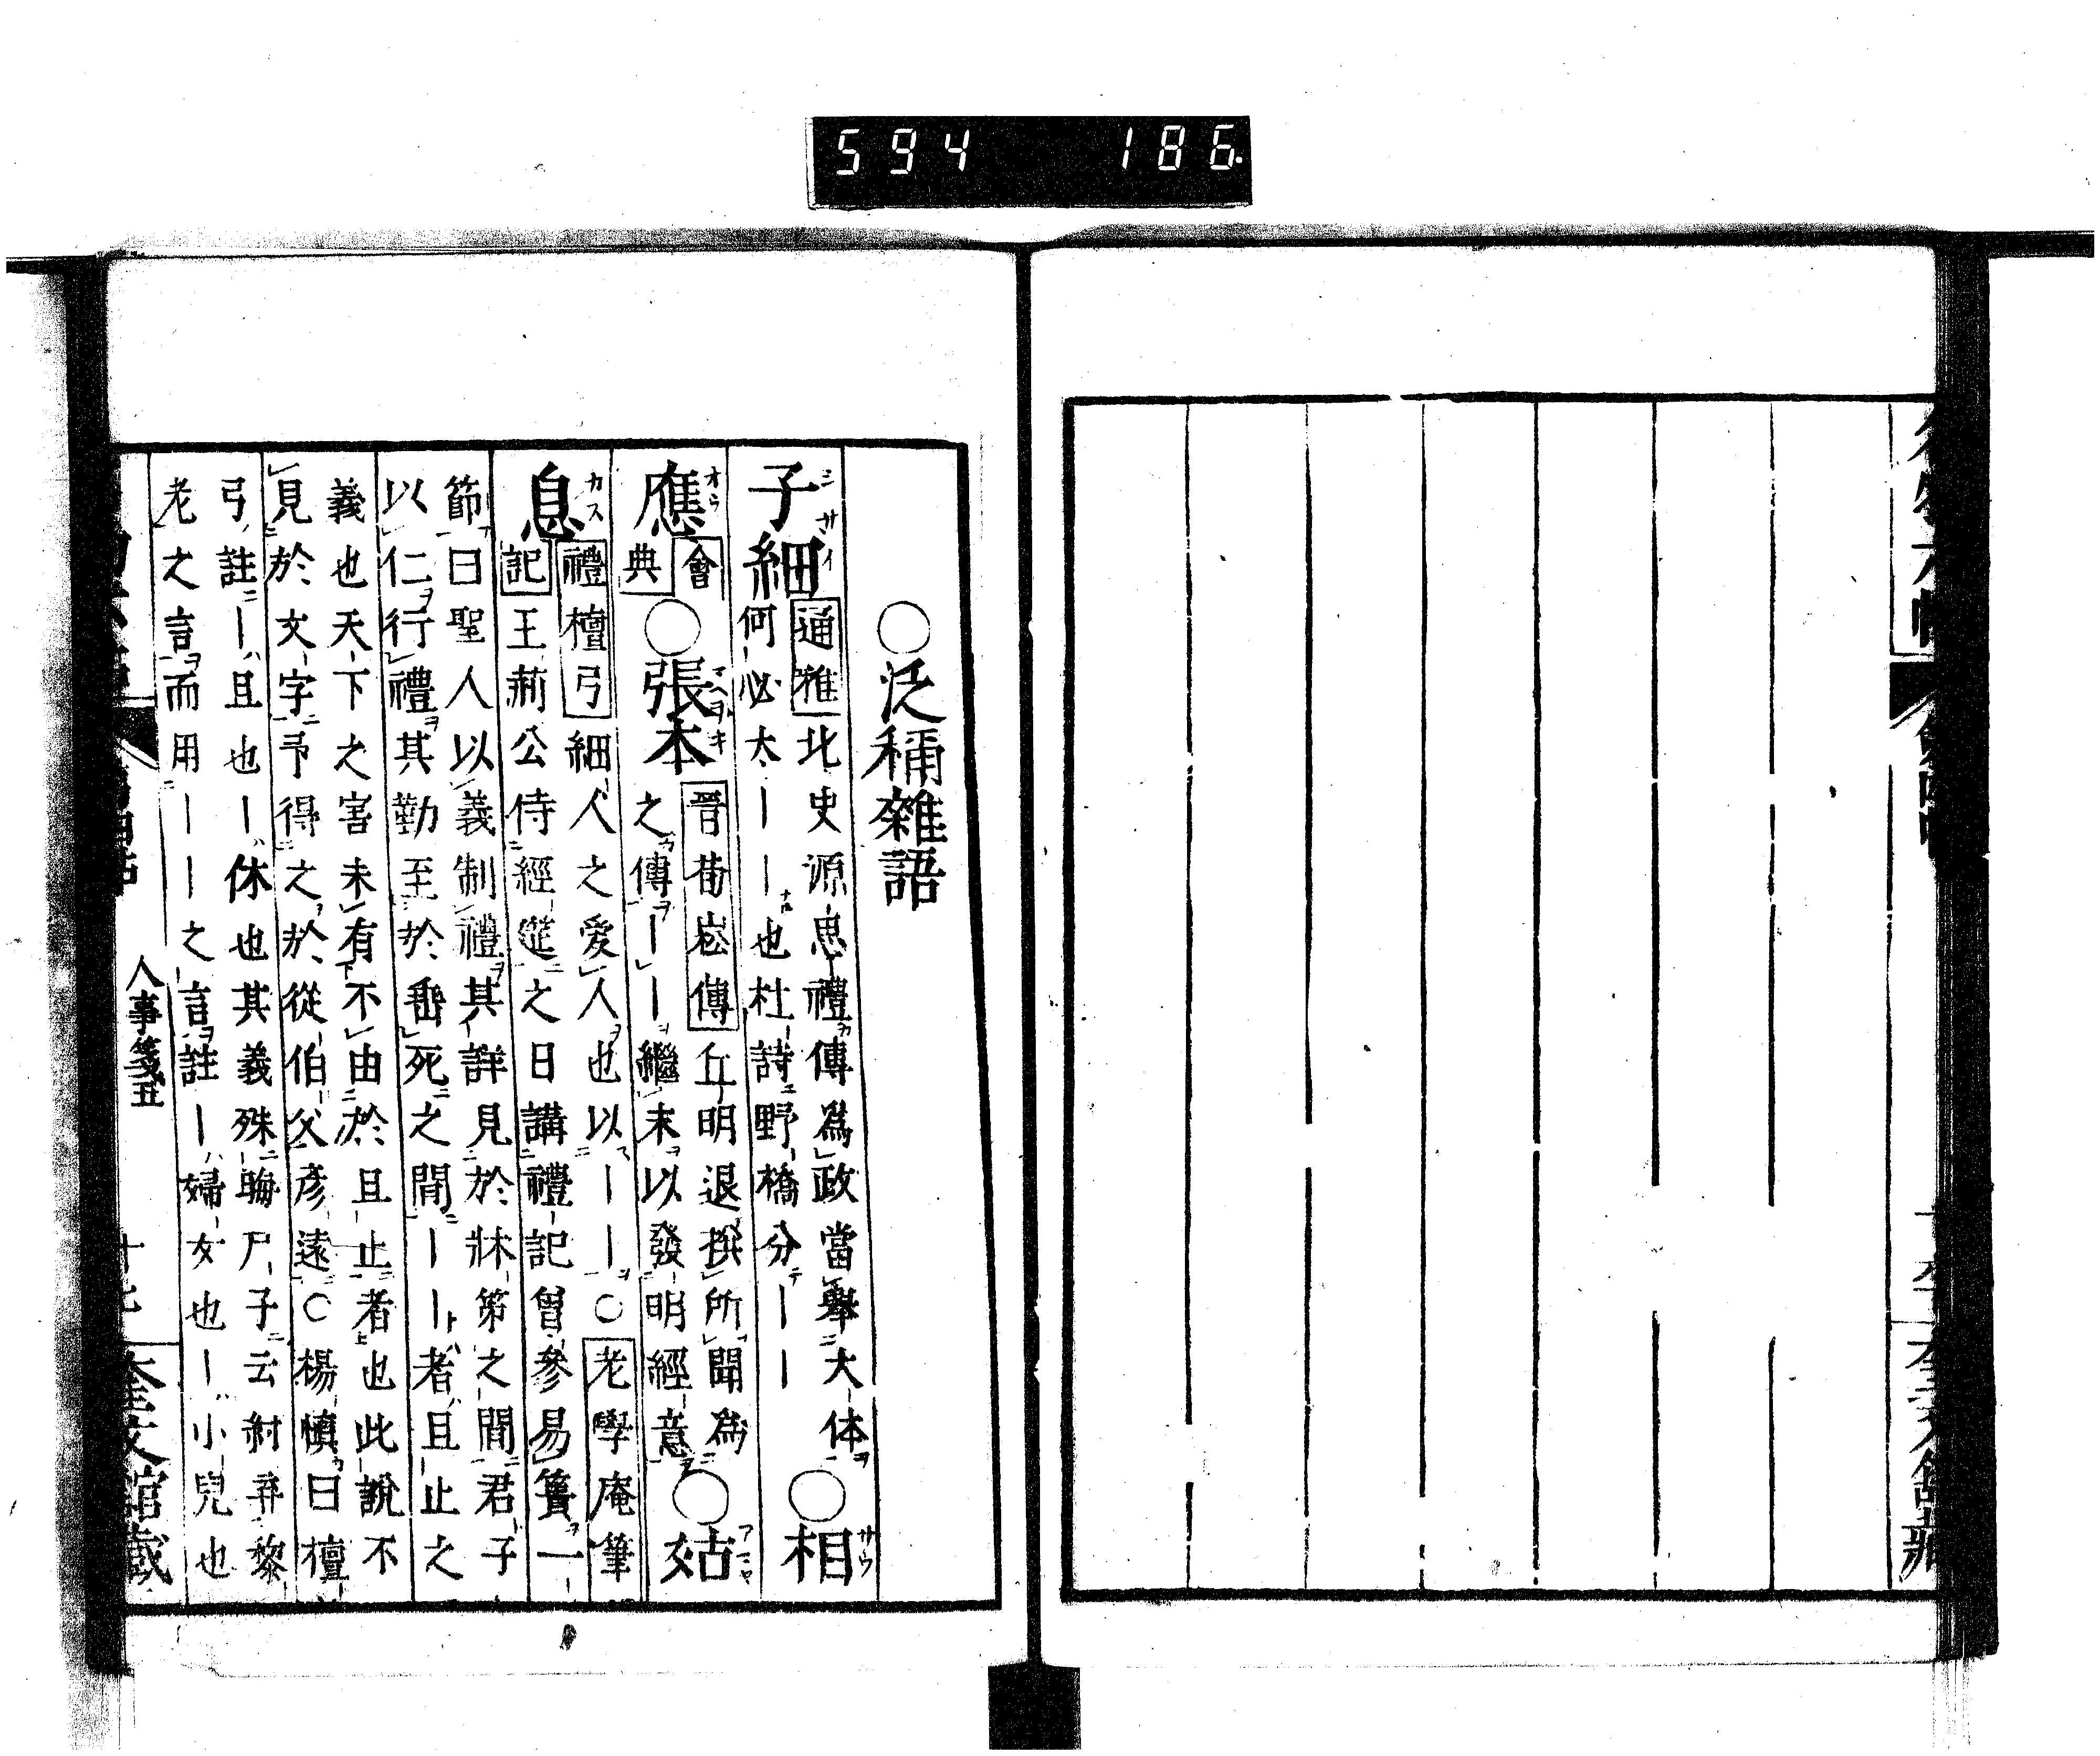 594 186
○泛稱雜語
子細
通雅北史源思禮傳爲政當舉大体
何必太丨丨也杜詩野橋分丨丨
○相
應
會典
○張本
晉荀崧傳丘明退撰所聞爲
之傳丨丨繼末以發明經意
○姑
息
禮檀弓細人之愛人也以丨丨○老學庵筆
記王荊公侍經筵之日講禮記曾參易簀一
節曰聖人以義制禮其詳見於牀笫之間君子
以仁行禮其勤至於垂死之間丨丨者且止之
義也天下之害未有不由於且止者也此說不
見於文字予得之於從伯父彥遠○楊慎曰檀
弓註丨且也丨休也其義殊晦尸子云紂弃黎
老之言而用丨丨之言註丨婦女也丨小兒也
人事箋丑
十七
奎文館藏
奎文館藏